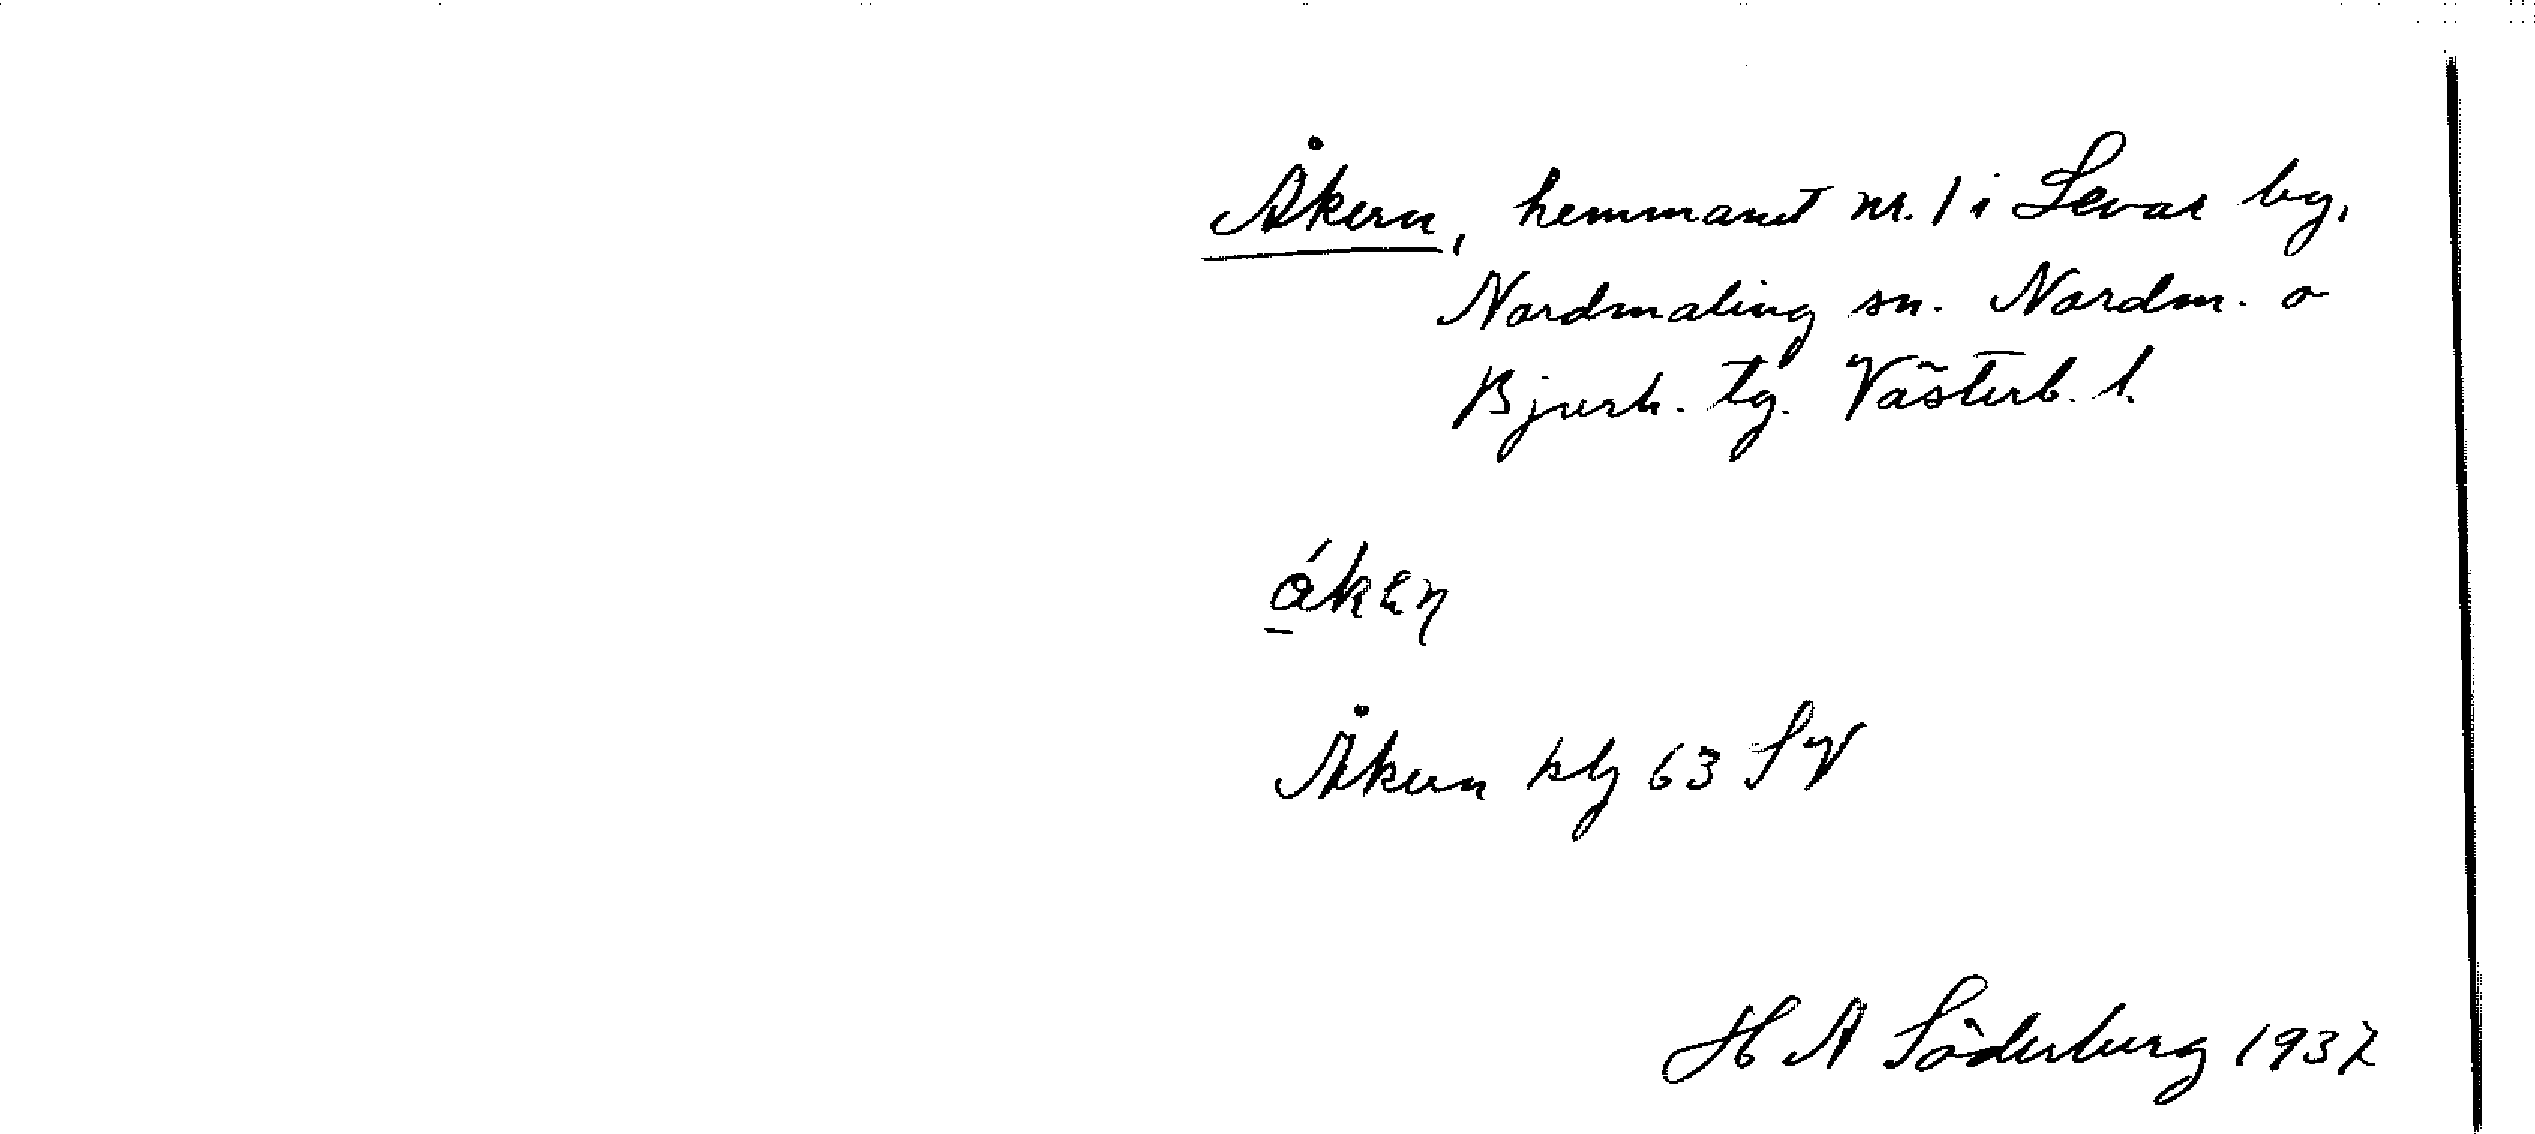 Åkern, hemmanet nr. 1 i Levar by,
Nordmaling sn. Nordm. o
Bjurh. tg. Västerb. l.
ákɛn
Åkern blg 63 SV
H A Söderberg 1937